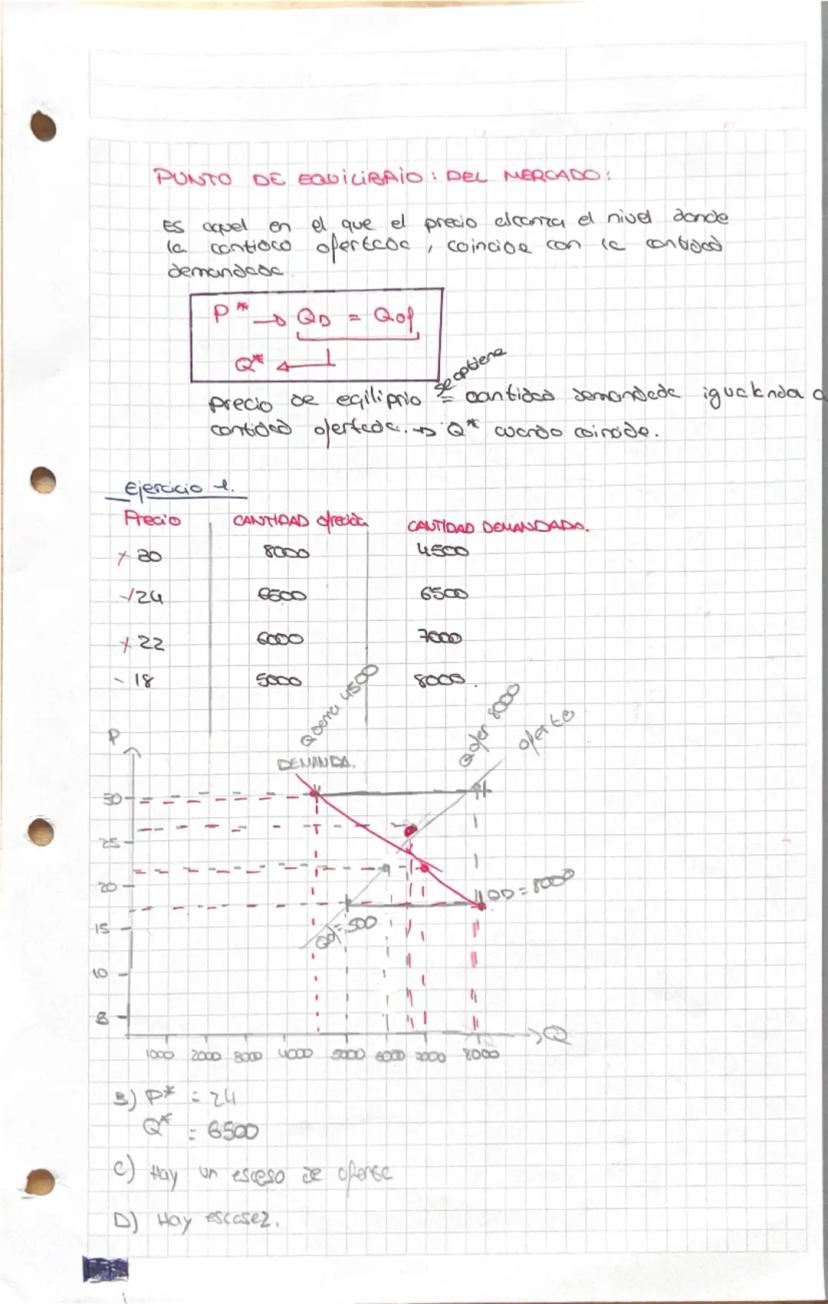 PUNTO DE EQUILIBRIO: DEL MERCADO:
Es aquel en el que el precio alcanza el nivel donde
la cantidad ofertada, coincide con la cantidad
demandada.
P* → QD = Qof
Q* ←
se obtiene
precio de eqiliprio = cantidad demandada igualando a
cantidad ofertada. → Q* cuando coincide.
Ejercicio 1.
Precio CANTIDAD ofrecida CANTIDAD DEMANDADA.
30 8000 4500
24 6500 6500
22 6000 7000
18 5000 8000
P
Q dema 4500
Qofer 8000
oferta
DEMANDA.
30
25
20
QD = 8000
15
Qof = 500
10
5
1000 2000 3000 4000 5000 6000 7000 8000 Q
B) P* = 24
Q* = 6500
C) Hay un esceso de oferta
D) Hay escasez.